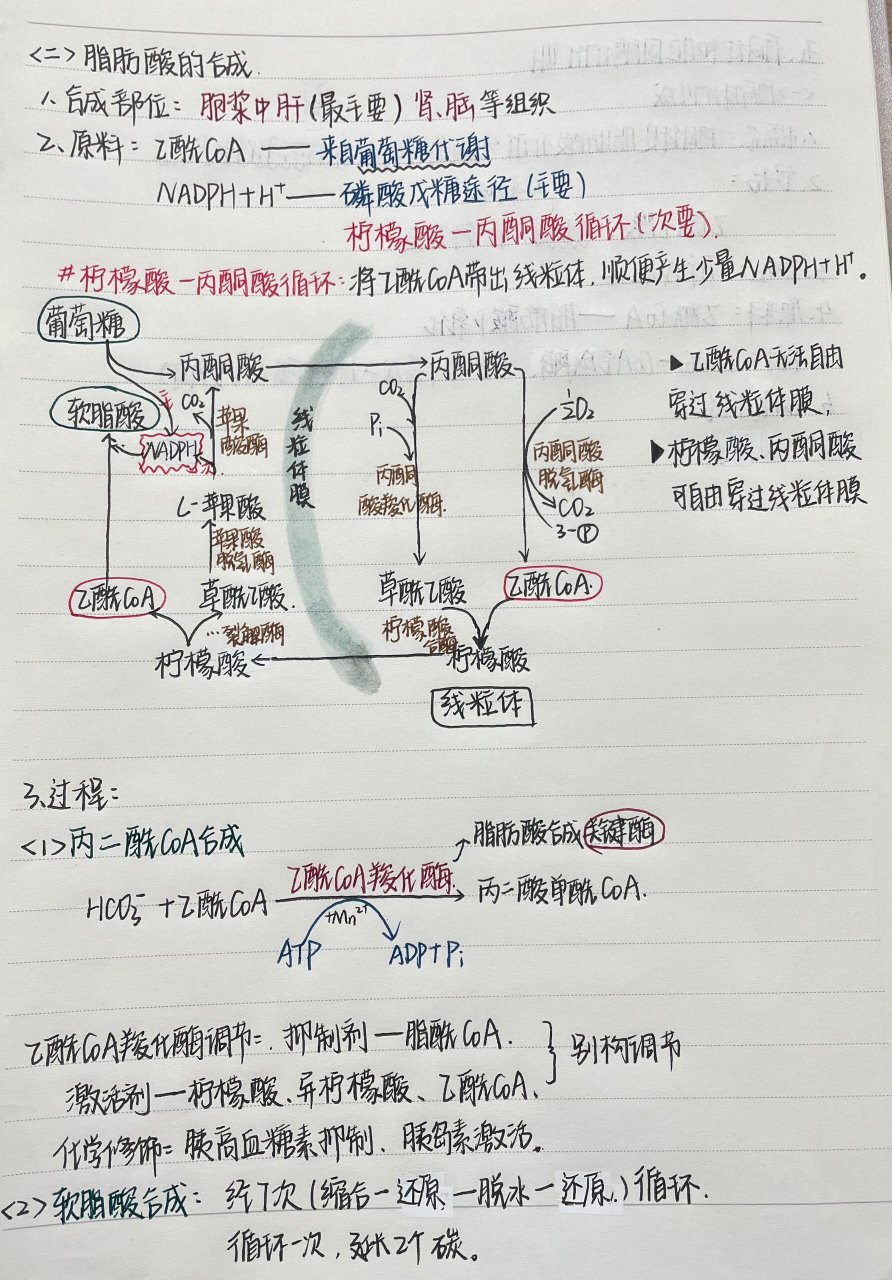 <二>脂肪酸的合成.
1、合成部位：胞浆中肝(最主要)肾、脑等组织
2、原料：乙酰CoA —— 来自葡萄糖代谢
NADPH+H⁺ —— 磷酸戊糖途径(主要)
柠檬酸—丙酮酸循环(次要).
#柠檬酸—丙酮酸循环：将乙酰CoA带出线粒体，顺便产生少量NADPH+H⁺。
葡萄糖
丙酮酸
丙酮酸
▶ 乙酰CoA无法自由
穿过线粒体膜；
▶ 柠檬酸、丙酮酸
可自由穿过线粒体膜
软脂酸
主
CO₂
苹果
酸酶
NADPH
L-苹果酸
苹果酸
脱氢酶
线粒体膜
CO₂
Pi
丙酮
酸羧化酶
½O₂
丙酮酸
脱氢酶
CO₂
3-Ⓟ
乙酰CoA
草酰乙酸.
草酰乙酸
乙酰CoA.
…裂解酶
柠檬酸
合酶
柠檬酸
柠檬酸
线粒体
3、过程：
<1>丙二酰CoA合成
脂肪酸合成关键酶
HCO₃⁻ + 乙酰CoA
乙酰CoA羧化酶
+Mn²⁺
丙二酸单酰CoA.
ATP
ADP+Pi
乙酰CoA羧化酶调节：抑制剂—脂酰CoA.
激活剂—柠檬酸、异柠檬酸、乙酰CoA、
别构调节
化学修饰：胰高血糖素抑制、胰岛素激活。
<2>软脂酸合成：经7次(缩合—还原—脱水—还原)循环.
循环一次，延长2个碳。